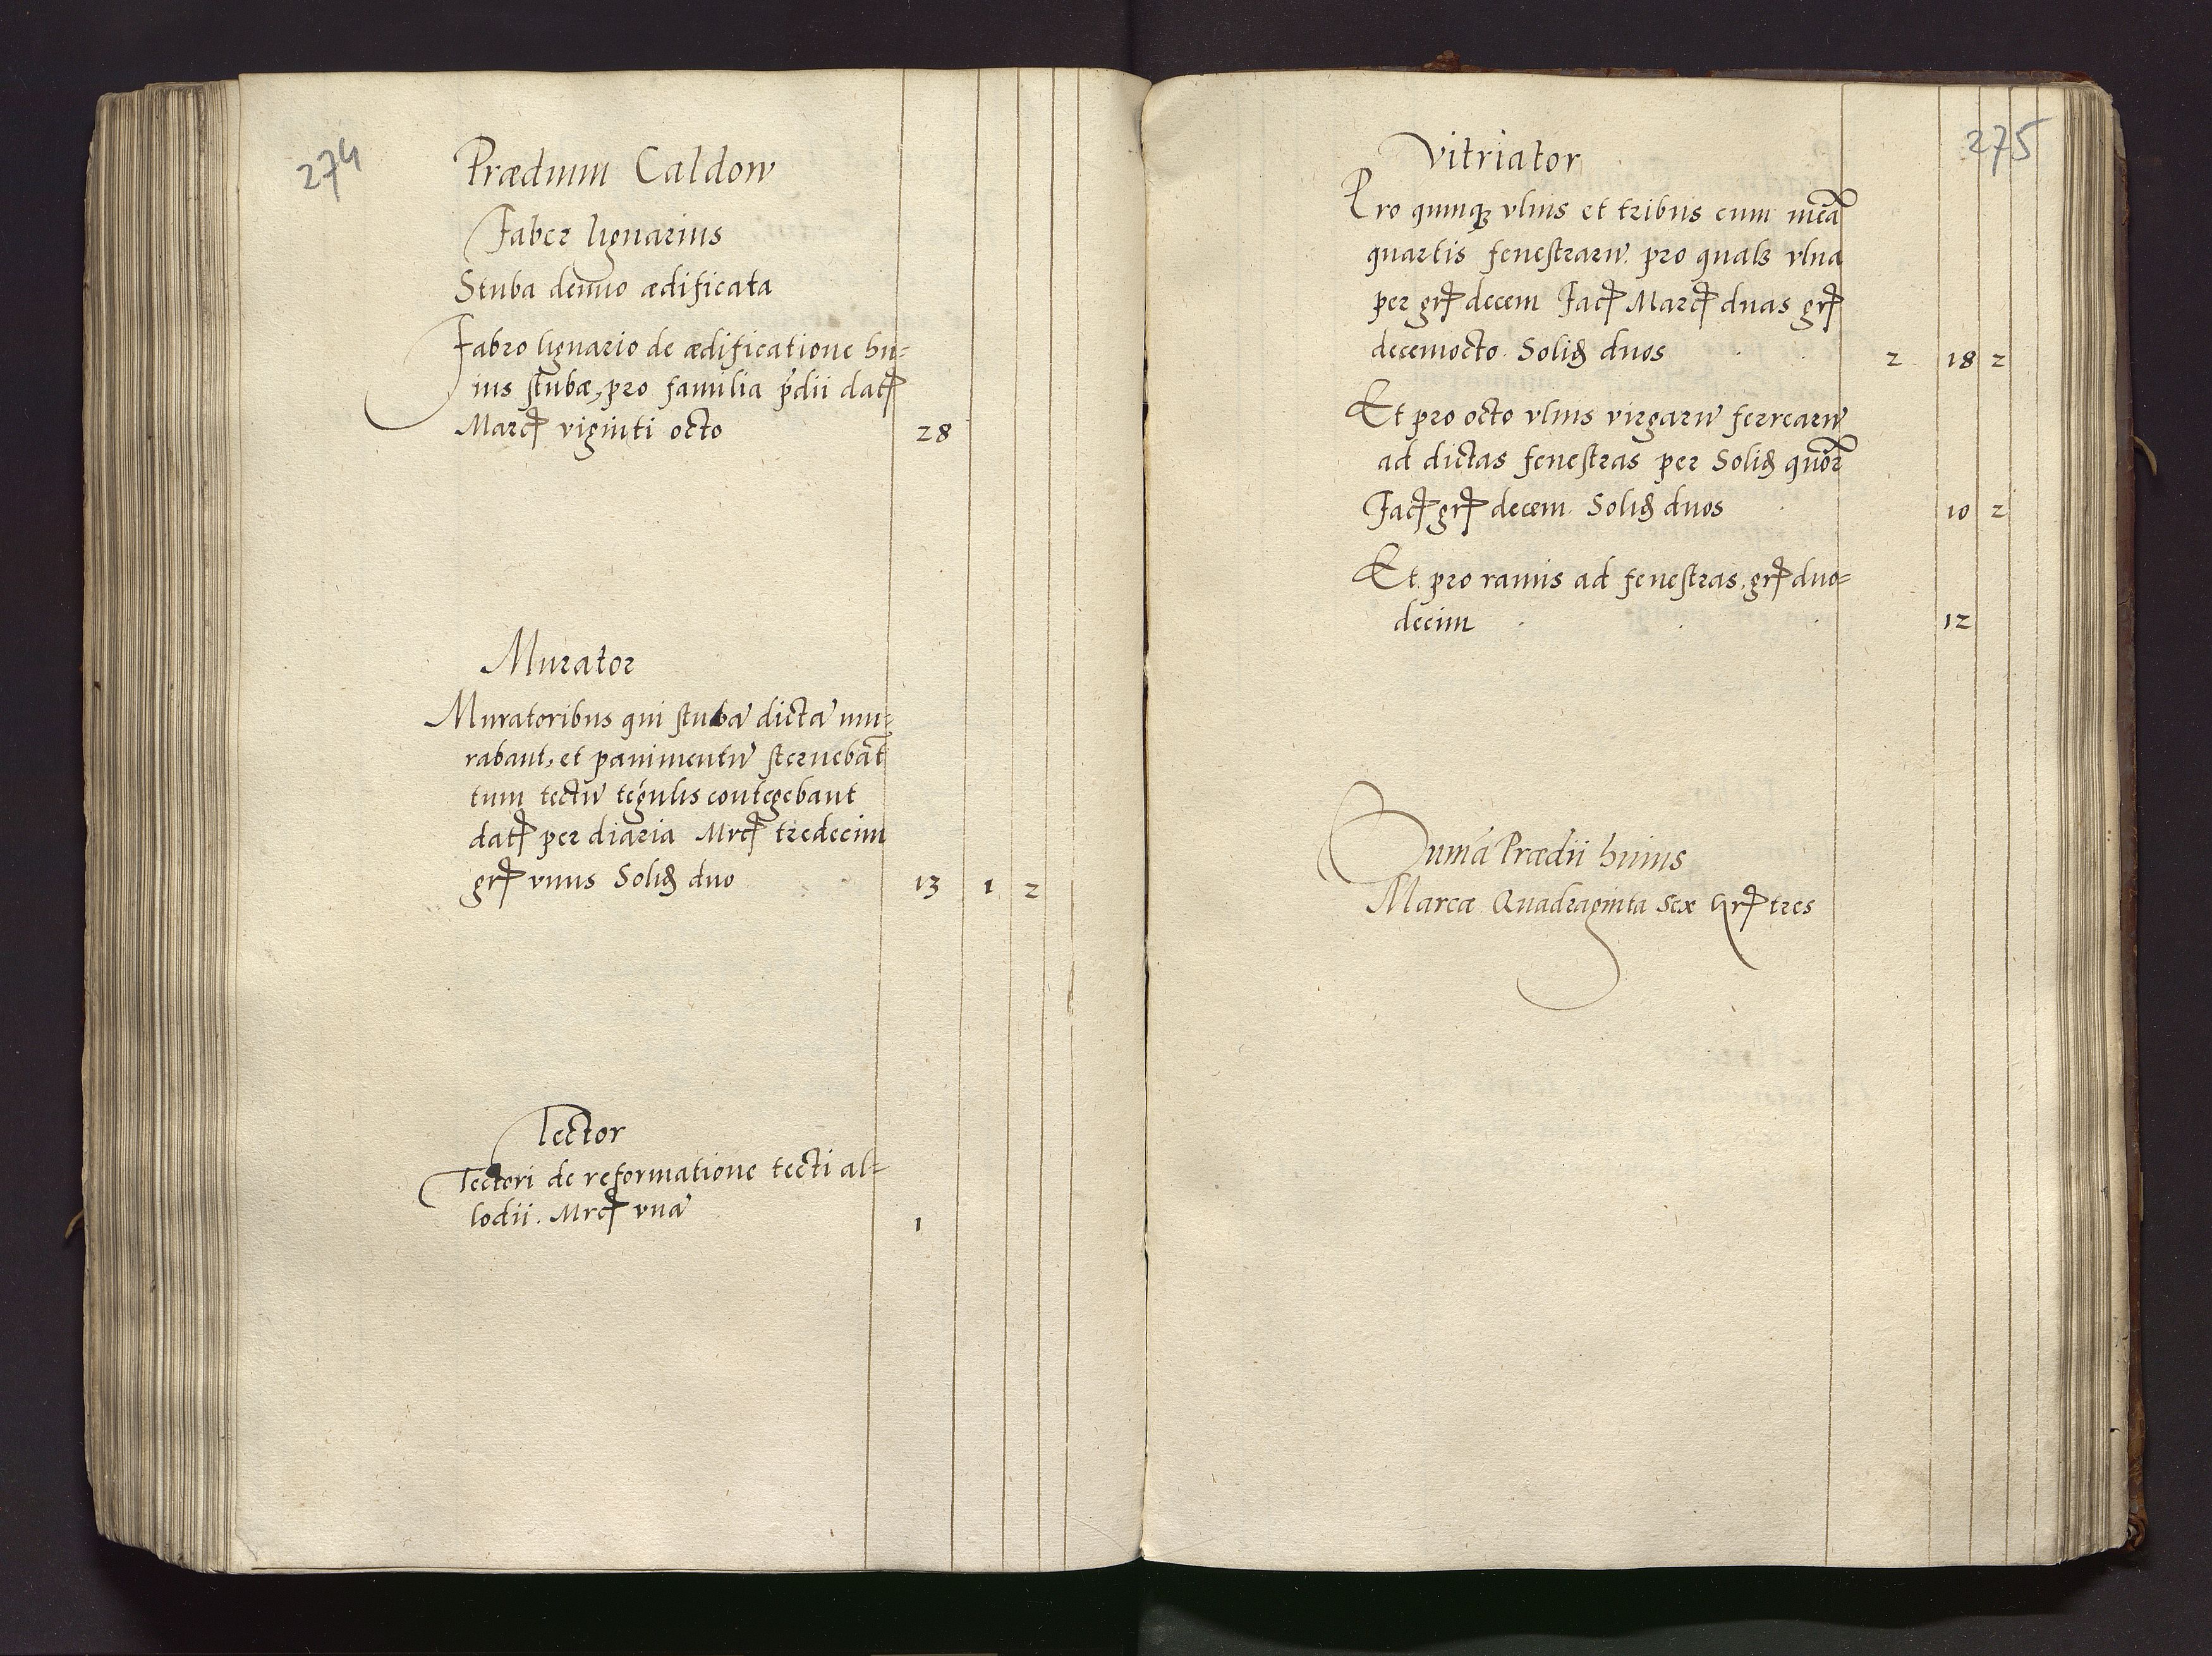 274
Prædium Caldow
Faber lignarius
Stuba denuo ædificata
Fabro lignario de ædificatione hu=
ius stubæ, pro familia p̄dii datꝭ
Marcꝭ viginti octo 28
Murator
Muratoribus qui stubā dictā mu=
rabant, et pauimentū sternebāt
tum tectū tegulis contegebant
datꝭ per diaria Mrcꝭ tredecim
grꝭ vnus Solid duo 13 1 2
Tector
Tectori de reformatione tecti al=
lodii. Mrcꝭ vnā 1
275
Vitriator
Pro quinqꝫ vlnis et tribus cum
quartis fenestrarū. pro qualꝫ vlna
per grꝭ decem Facꝭ Marcꝭ duas grꝭ
decemocto. Solid duos 2 18 2
Et pro octo vlnis virgarū ferrearū
ad dictas fenestras per Solid quōr
Facꝭ grꝭ decem. Solid duos 10 2
Et pro ramis ad fenestras. grꝭ duo=
decim 12
Sumā Prædii huius
Marcæ Quadraginta Sex Grꝭ tres